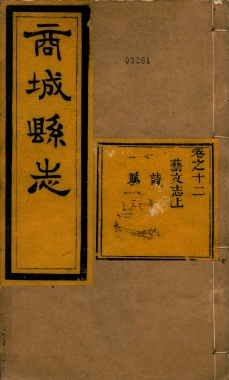 商城縣志
03281
卷之十二
藝文志上
詩
賦